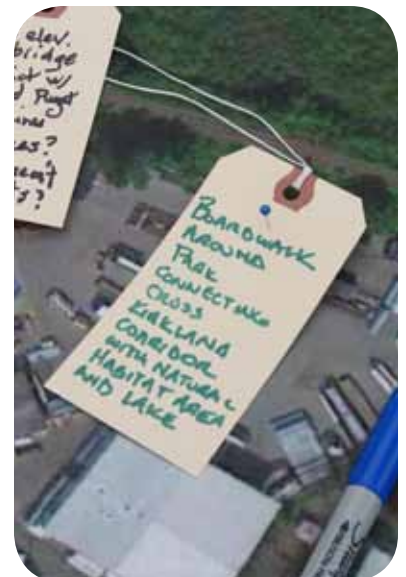 elev.
bridge
w/
BOARDWALK
AROUND
PARK
CONNECTING
CROSS
KIRKLAND
CORRIDOR
WITH NATURAL
HABITAT AREA
AND LAKE